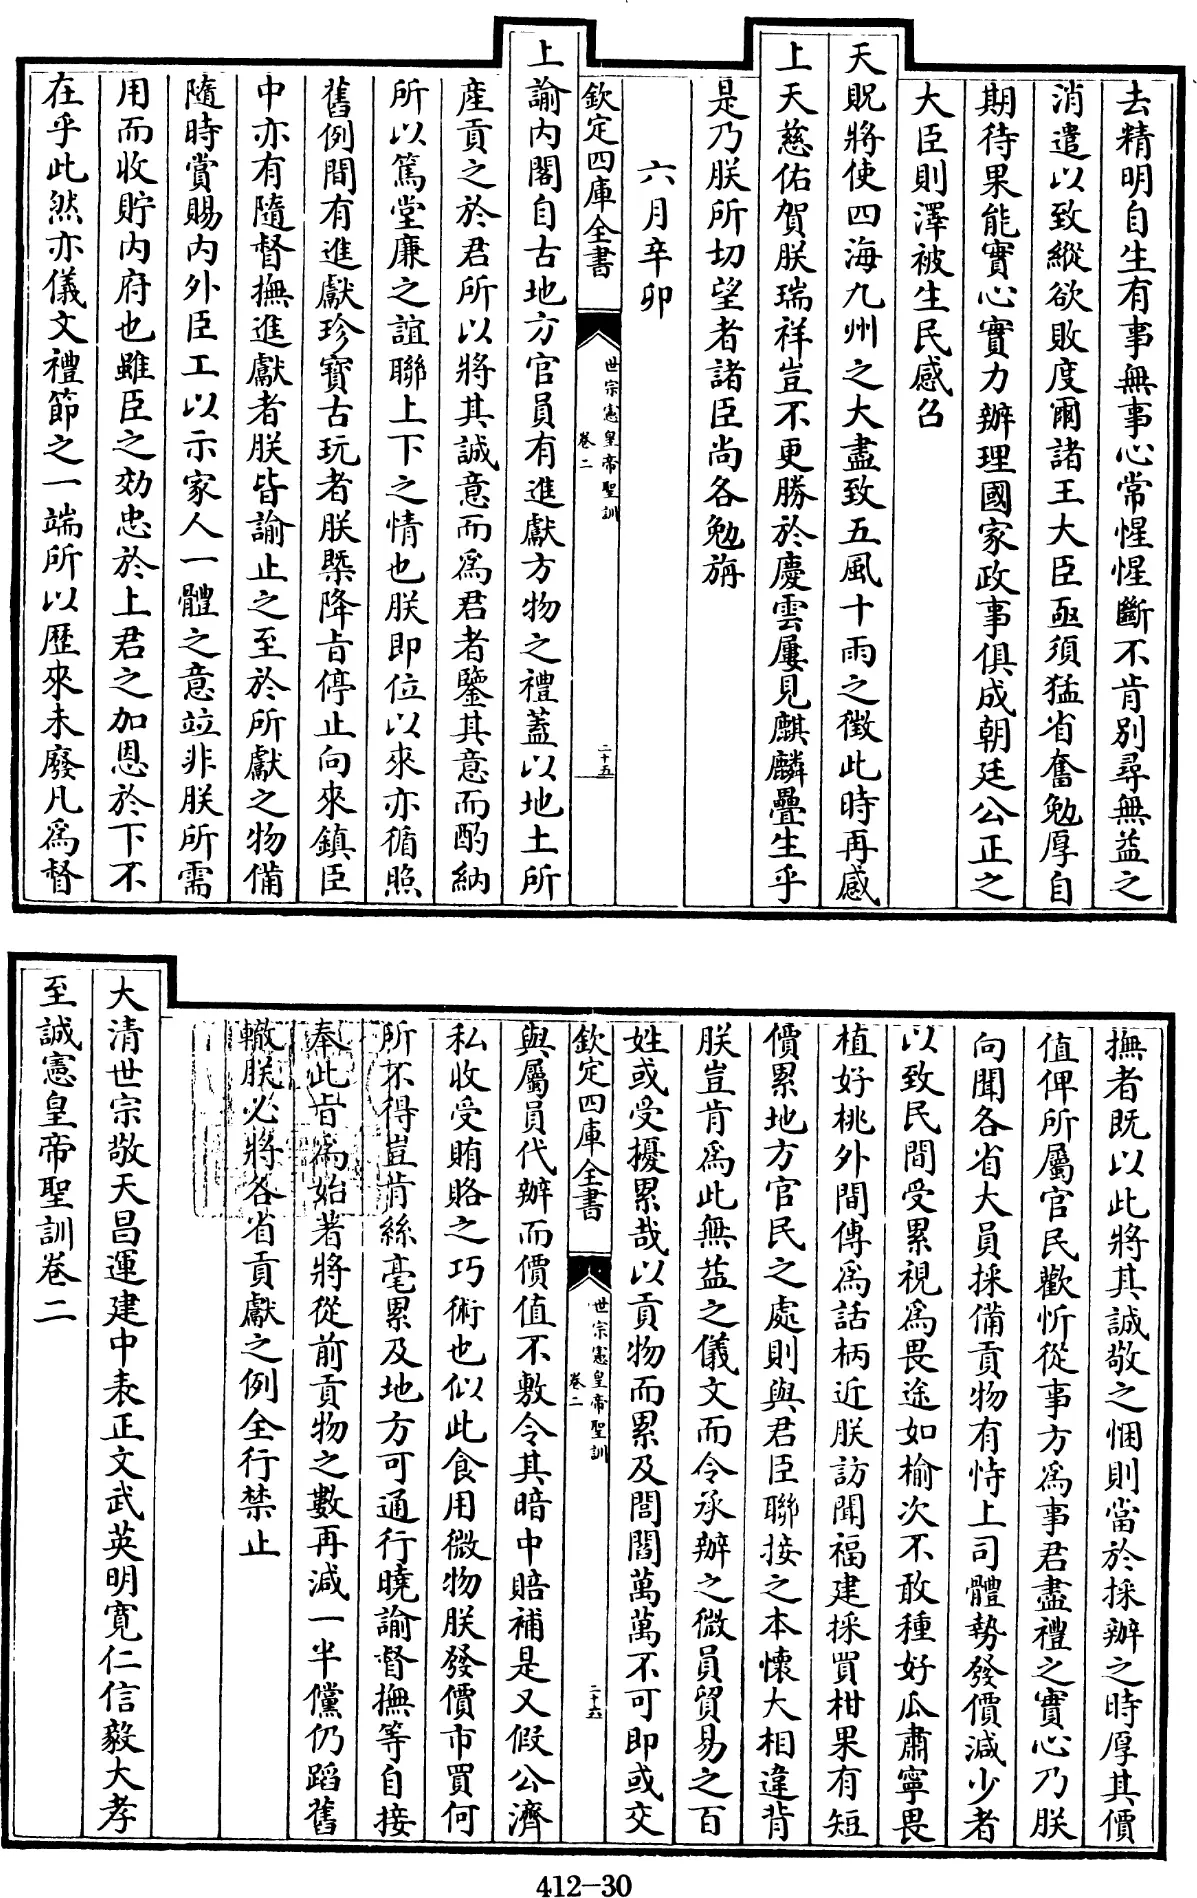 去精明自生有事無事心常惺惺斷不肯别尋無益之
消遣以致縱欲敗度爾諸王大臣亟須猛省奮勉厚自
期待果能實心實力辦理國家政事俱成朝廷公正之
大臣則澤被生民感召
天貺將使四海九州之大盡致五風十雨之徵此時再感
上天慈佑賀朕瑞祥豈不更勝於慶雲屢見麒麟疊生乎
是乃朕所切望者諸臣尚各勉旃
六月辛卯
欽定四庫全書
世宗憲皇帝聖訓
卷二
二十五
上諭内閣自古地方官員有進獻方物之禮蓋以地土所
産貢之於君所以將其誠意而為君者鑒其意而酌納
所以篤堂廉之誼聯上下之情也朕即位以來亦循照
舊例間有進獻珍寶古玩者朕槩降旨停止向來鎮臣
中亦有隨督撫進獻者朕皆諭止之至於所獻之物備
隨時賞賜内外臣工以示家人一體之意竝非朕所需
用而收貯内府也雖臣之効忠於上君之加恩於下不
在乎此然亦儀文禮節之一端所以歷來未廢凡為督
撫者既以此將其誠敬之悃則當於採辦之時厚其價
值俾所屬官民歡忻從事方為事君盡禮之實心乃朕
向聞各省大員採備貢物有恃上司體勢發價減少者
以致民間受累視為畏途如榆次不敢種好瓜肅寧畏
植好桃外間傳為話柄近朕訪聞福建採買柑果有短
價累地方官民之處則與君臣聯接之本懷大相違背
朕豈肯為此無益之儀文而令承辦之微員貿易之百
姓或受擾累哉以貢物而累及閭閻萬萬不可即或交
欽定四庫全書
世宗憲皇帝聖訓
卷二
二十六
與屬員代辦而價值不敷令其暗中賠補是又假公濟
私收受賄賂之巧術也似此食用微物朕發價市買何
所不得豈肯絲毫累及地方可通行曉諭督撫等自接
奉此旨為始著將從前貢物之數再減一半儻仍蹈舊
轍朕必將各省貢獻之例全行禁止
大清世宗敬天昌運建中表正文武英明寛仁信毅大孝
至誠憲皇帝聖訓卷二
412-30